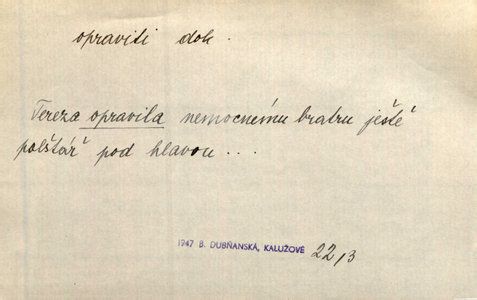 opraviti dok.
Tereza opravila nemocnému bratru ještě
polštář pod hlavou ...
1947 B. DUBŇANSKÁ, KALUŽOVÉ 22/3